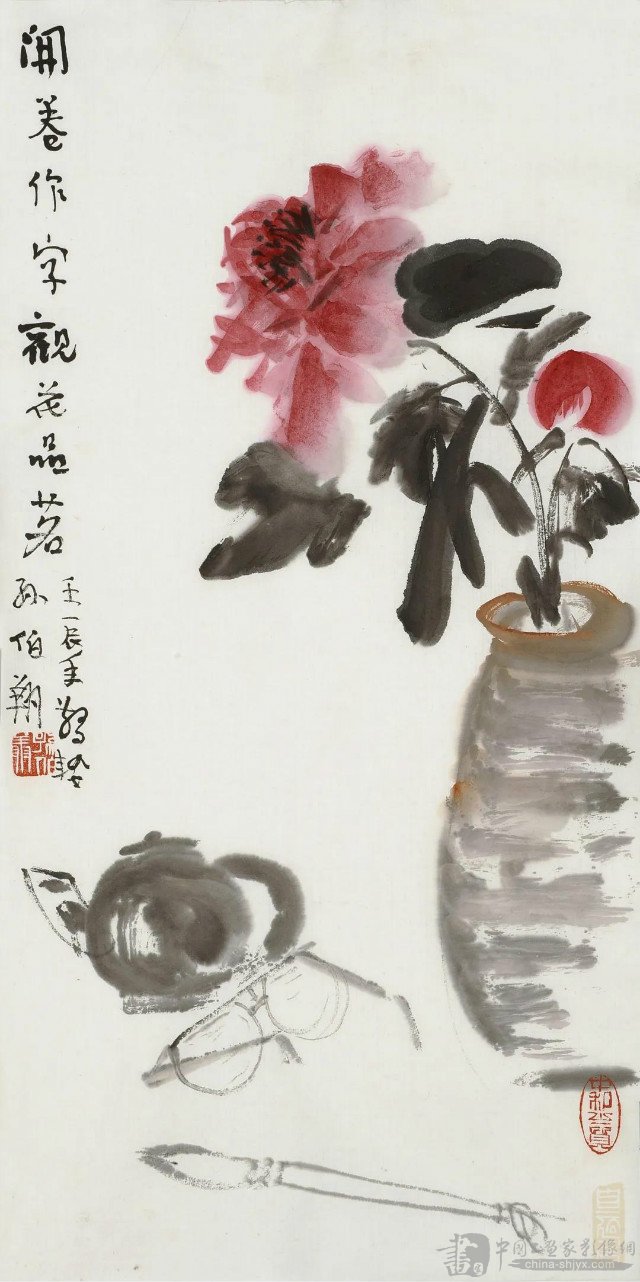 開卷作字觀花品茗
壬辰年驚蟄
孫伯翔
中國書画家影像網
china-shjyx.com